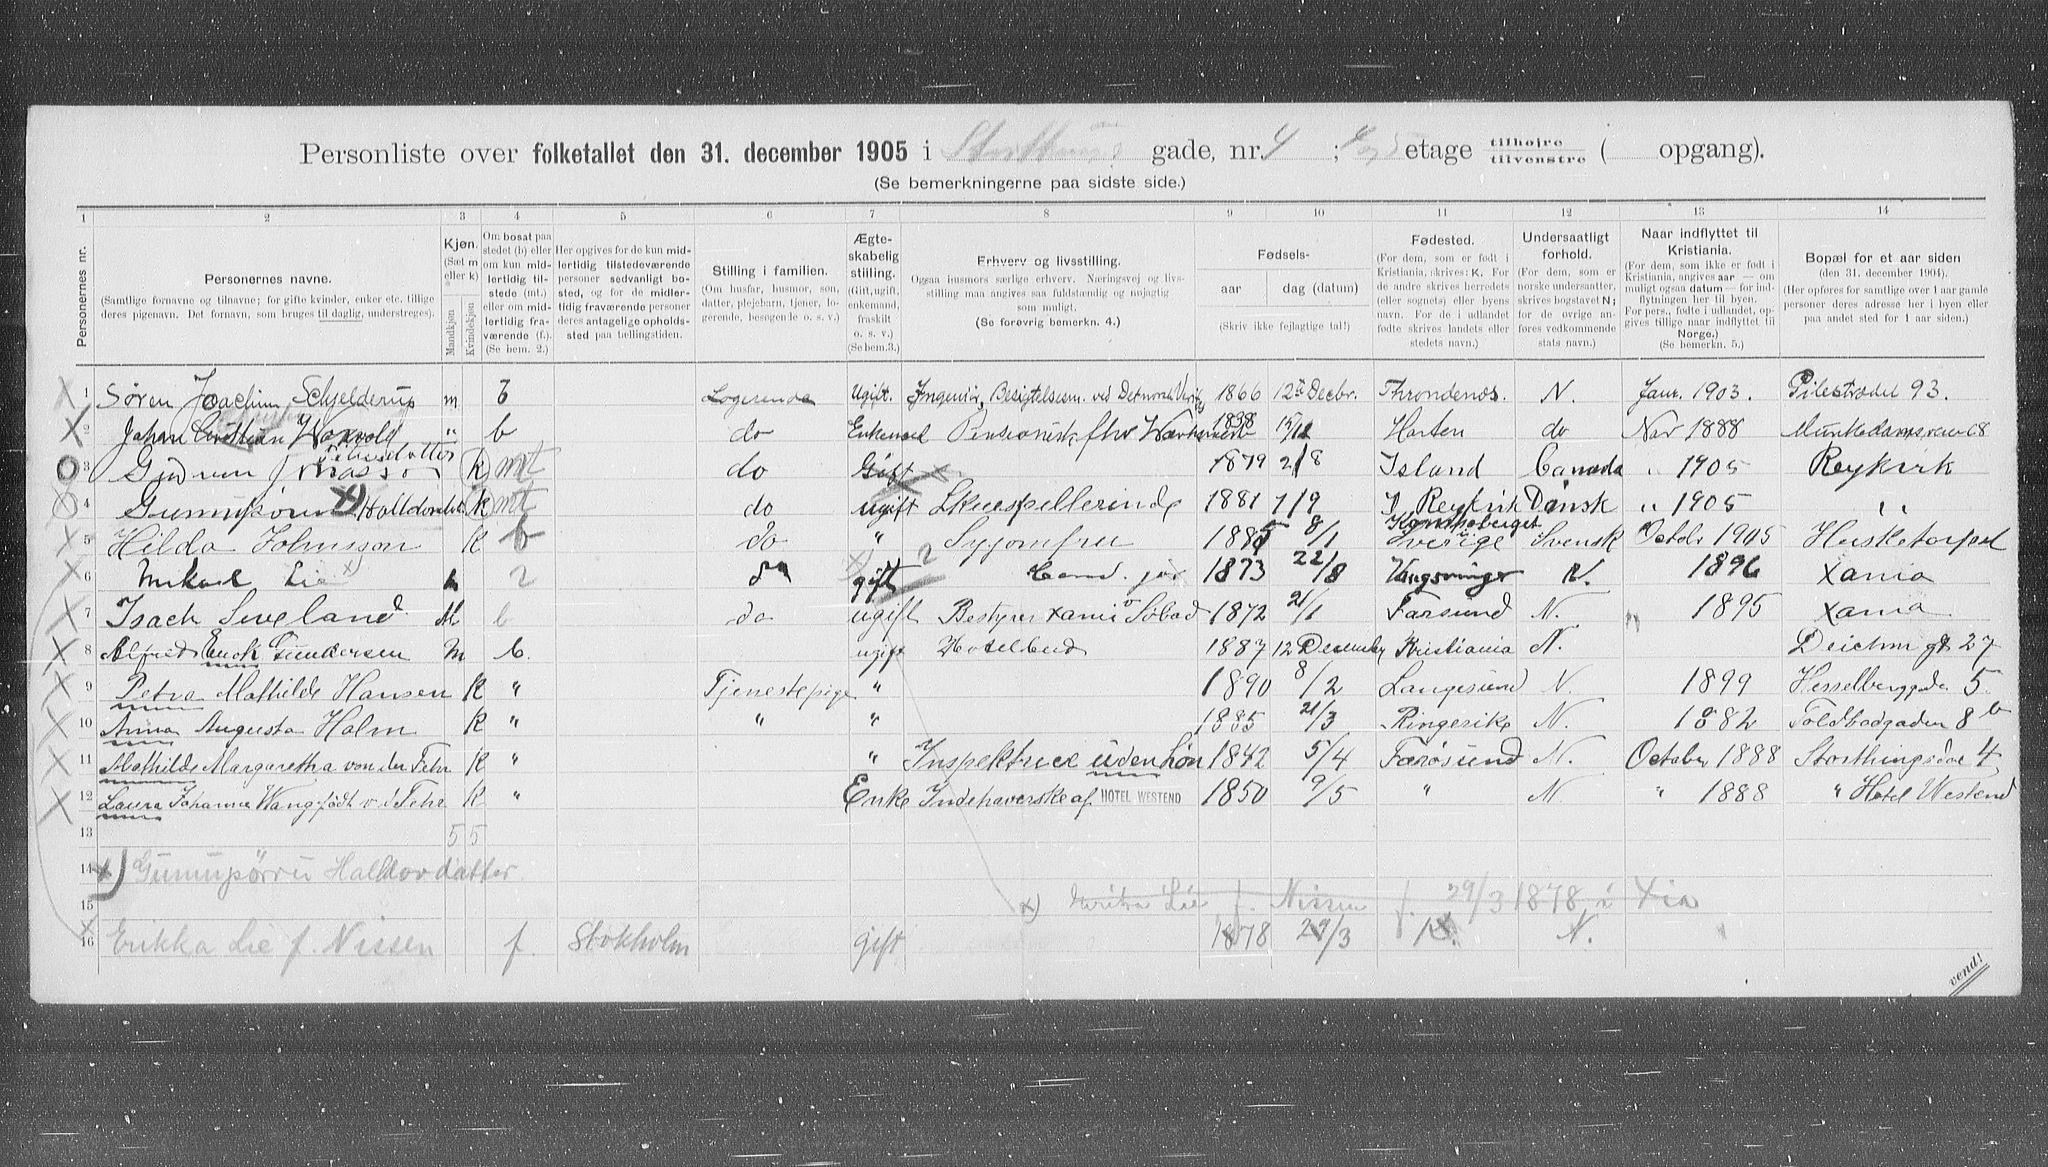 Personliste over folketallet den 31. december 1905 i gade, nr. 4 ; etage tilhøjre tilvenstre ( opgang).
(Se bemerkningerne paa sidste side.)
1 2 3 4 5 6 7 8 9 10 11 12 13 14
Personernes nr.
Personernes navne.
(Samtlige fornavne og tilnavne; for gifte kvinder, enker etc. tillige deres pigenavn. Det fornavn, som bruges til daglig, understreges).
Kjøn.
(Sæt m eller k)
Mandkjøn
Kvindekjøn
Om bosat paa stedet (b) eller om kun midlertidig tilstede (mt.) eller om midlertidig fraværende (f.).
(Se bem. 2.)
Her opgives for de kun midlertidig tilstedeværende personer sedvanligt bosted, og for de midlertidig fraværende personer deres antagelige opholdssted paa tællingstiden.
Stilling i familien.
(Om husfar, husmor, søn, datter, plejebarn, tjener, logerende, besøgende o. s. v.)
Ægteskabelig stilling.
(Gift, ugift, enkemand, fraskilt o. s. v.)
(Se bem. 3.)
Erhverv og livsstilling.
Ogsaa husmors særlige erhverv. Næringsvej og livsstilling maa angives saa fuldstændig og nøjagtig som muligt.
(Se forøvrig bemerkn. 4.)
Fødsels-
aar dag (datum)
(Skriv ikke fejlagtige tal!)
Fødested.
(For dem, som er født i Kristiania, skrives: K. For de andre skrives herredets (eller sognets) eller byens navn. For de i udlandet fødte skrives landets eller stedets navn.)
Undersaatligt forhold.
(For dem, som er norske undersaatter, skrives bogstavet N; for de øvrige anføres vedkommende stats navn.)
Naar indflyttet til Kristiania.
(For dem, som ikke er født i Kristiania, angives aar — om muligt ogsaa datum — for indflytningen her til byen. For pers., fødte i udlandet, opgives tillige naar indflyttet til Norge.)
(Se bemerkn. 5.)
Bopæl for et aar siden
(den 31. december 1904).
(Her opføres for samtlige over 1 aar gamle personer deres adresse her i byen eller paa andet sted for 1 aar siden.)
1 Søren Joachim Schjelderup m b Logerende Ugift. Ingeniør, Besigtelsesm. ved Det norske Veritas 1866 12te Decbr. Throndenæs. N. Janr. 1903. Pilestrædet 93.
2 Johan Christian " b do Enkemand Pensionist fhv 1838 Horten do Nov 1888 Munkedamsveien 68
3 Gudrun K mt do Gift 1879 2/8 Island Canada " 1905 Reykvik
4 x) Halldorsdt. K mt do ugift Skuespellerinde 1881 7/9 Reykvik Dansk " 1905 "
5 Hilda Johnsson K b do " Syjomfru 1885 8/1 Sverige Svensk Octobr 1905
6 Mikael Lie x) do gift 2 Cand. jur 1873 22/8 Kongsvinger N. 1896 Xania
7 Isach Siveland M b do ugift Bestyrer Xania Søbad 1872 21/1 Farsund N. " 1895 Xania
8 Alfred Enok Gundersen m b. ugift Hotelbud 1887 12 December Kristiania N. Deichm gt 27
9 Petra Mathilde Hansen K " Tjenestepige " 1890 8/2 Langesund N. 1899 Hesselberggade 5
10 Anna Augusta Holm K " " " 1885 21/3 Ringerike N. 1882 Toldbodgaden 8 b
11 Mathilde Margaretha von der Fehr K " " Inspektrice uden løn 1842 5/4 Farøsund N. October 1888 Storthingsgaden 4
12 Laura Johanne Wang født v. d. Fehr K " Enke Indehaverske af HOTEL WESTEND 1850 9/5 " N. " 1888 " Hotel Westend
13 5 5
14 x) Haldordatter
15 x) Lie f. Nissen f. 29/3 1878 i Xia
16 Erikka Lie f. Nissen f. Stokholm gift 1878 29/3 N.
vend!